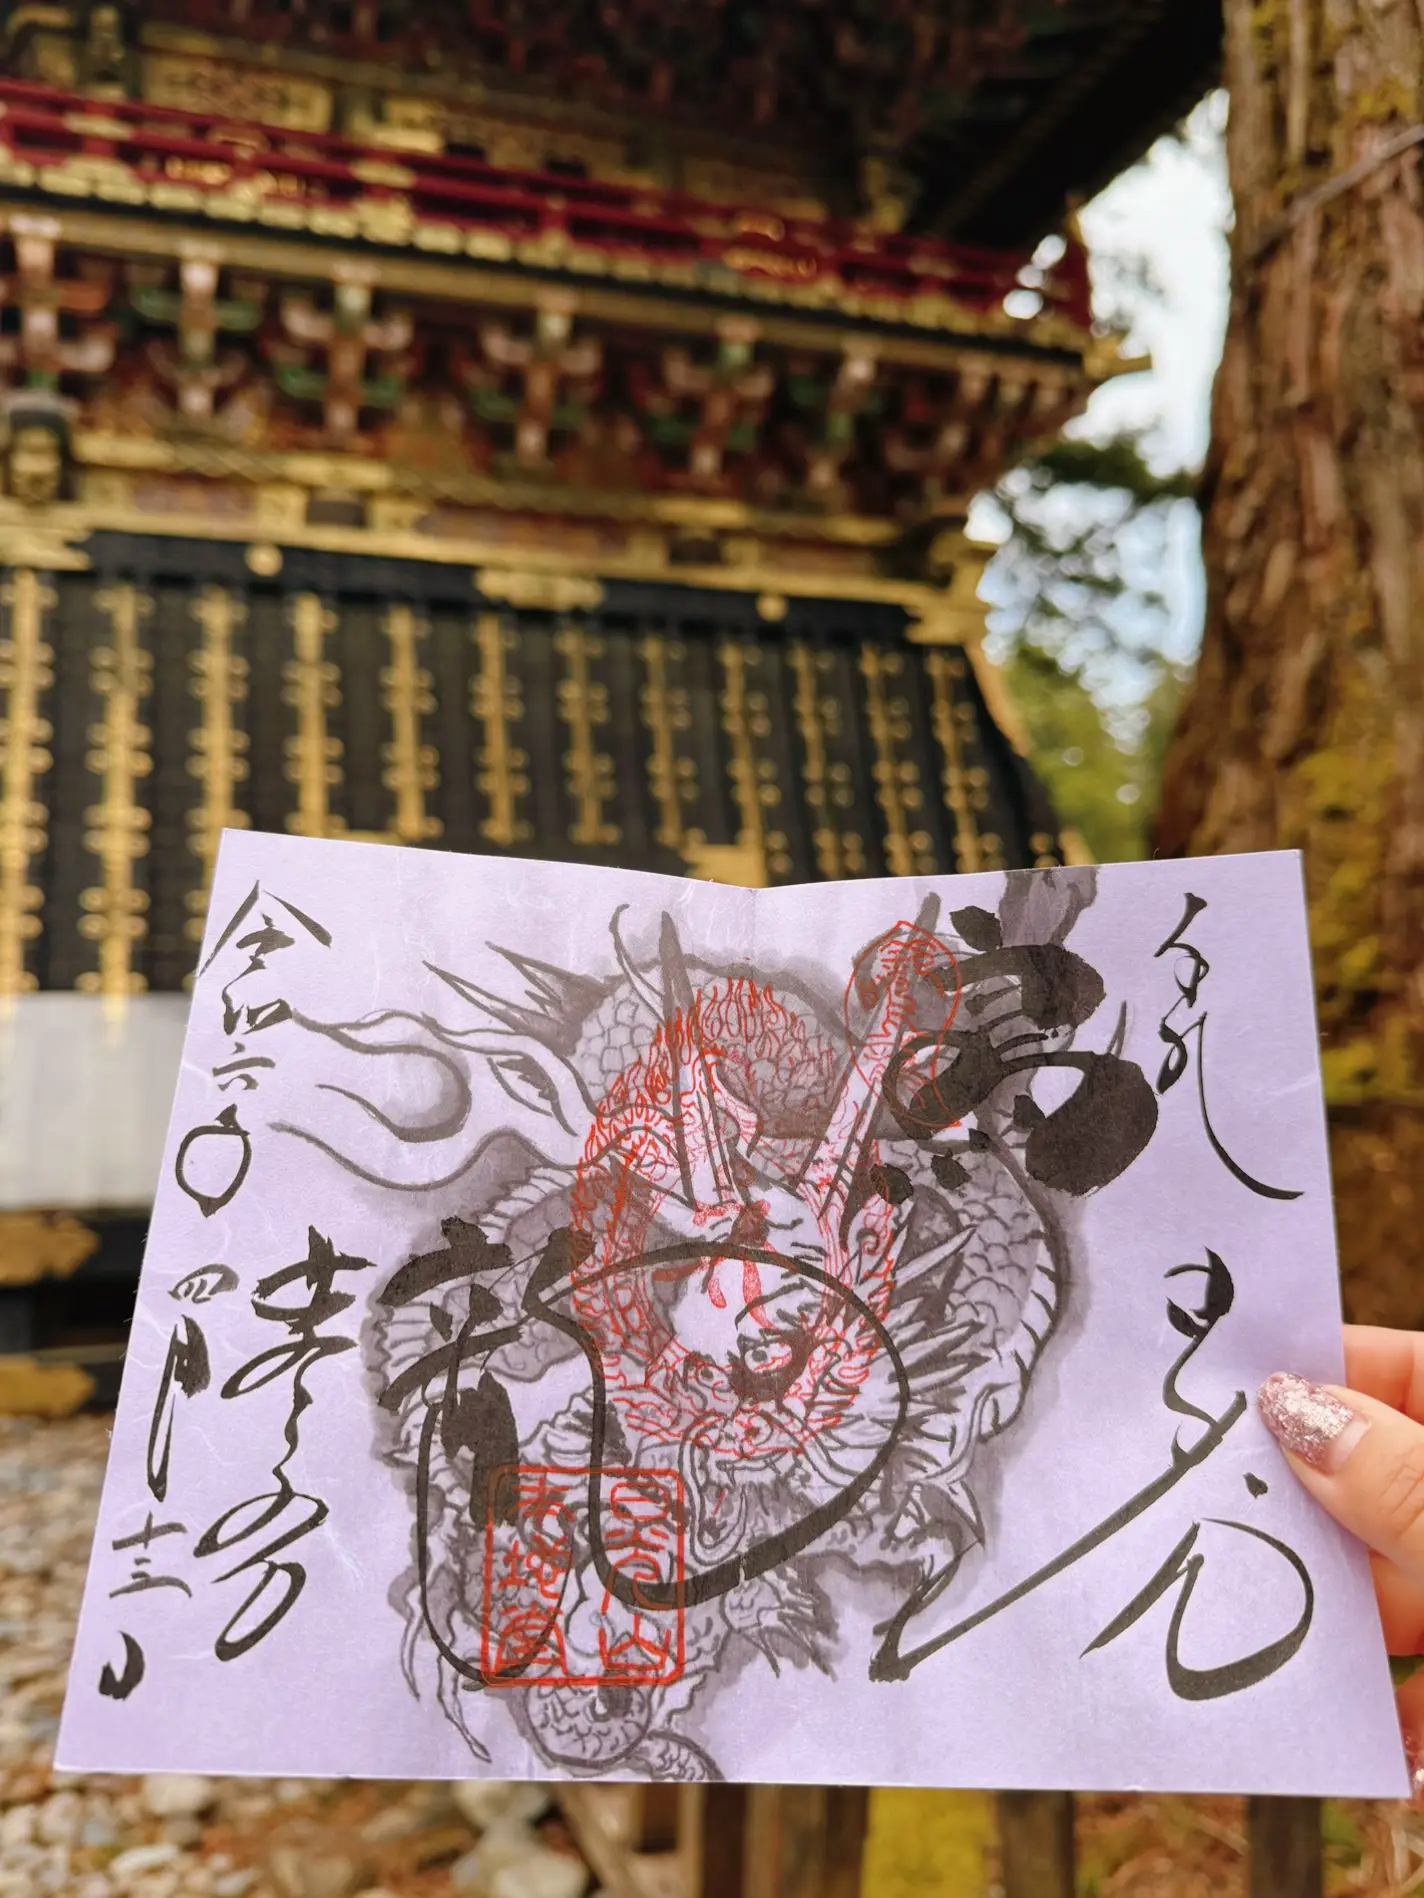 奉拝
日光
鳴龍
日光山
本地堂
令和六年四月十三日